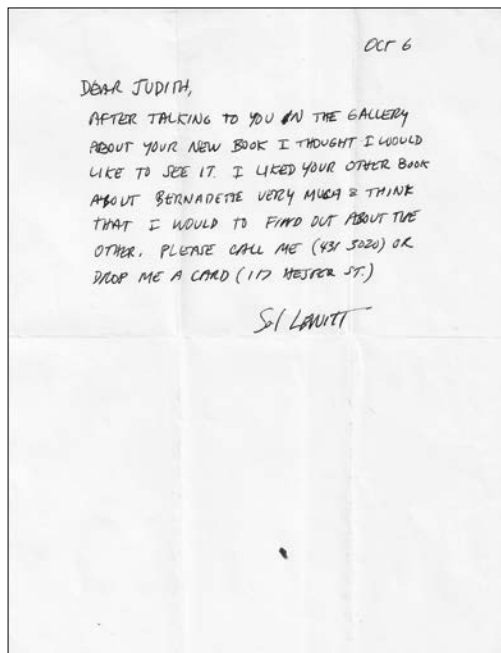 OCT 6
DEAR JUDITH,
AFTER TALKING TO YOU IN THE GALLERY
ABOUT YOUR NEW BOOK I THOUGHT I WOULD
LIKE TO SEE IT. I LIKED YOUR OTHER BOOK
ABOUT BERNADETTE VERY MUCH & THINK
THAT I WOULD TO FIND OUT ABOUT THE
OTHER. PLEASE CALL ME (431 3020) OR
DROP ME A CARD (117 HESTER ST.)
Sol LEWITT